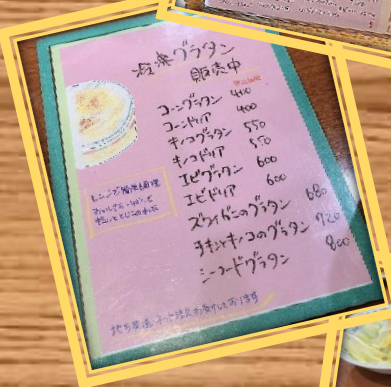 冷凍グラタン
販売中
コーングラタン 400
コーンドリア 400
キノコグラタン 550
キノコドリア 550
エビグラタン 600
エビドリア 600
ズワイガニのグラタン 680
チキンとキノコのグラタン 720
シーフードグラタン 800
レンジで簡単調理
地方発送・ネット注文お受けしております